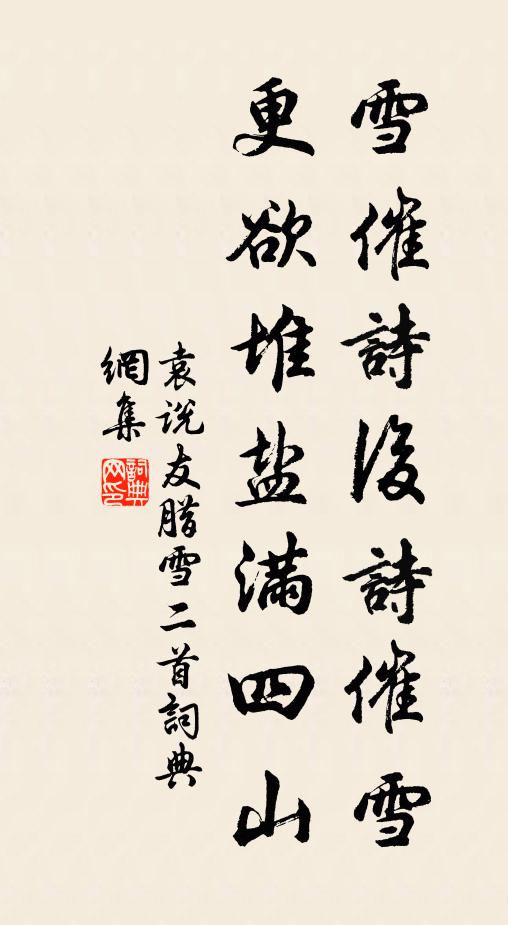 雪催詩後詩催雪
更欲堆盐滿四山
袁説友腊雪二首詞典
網集
詞典网印